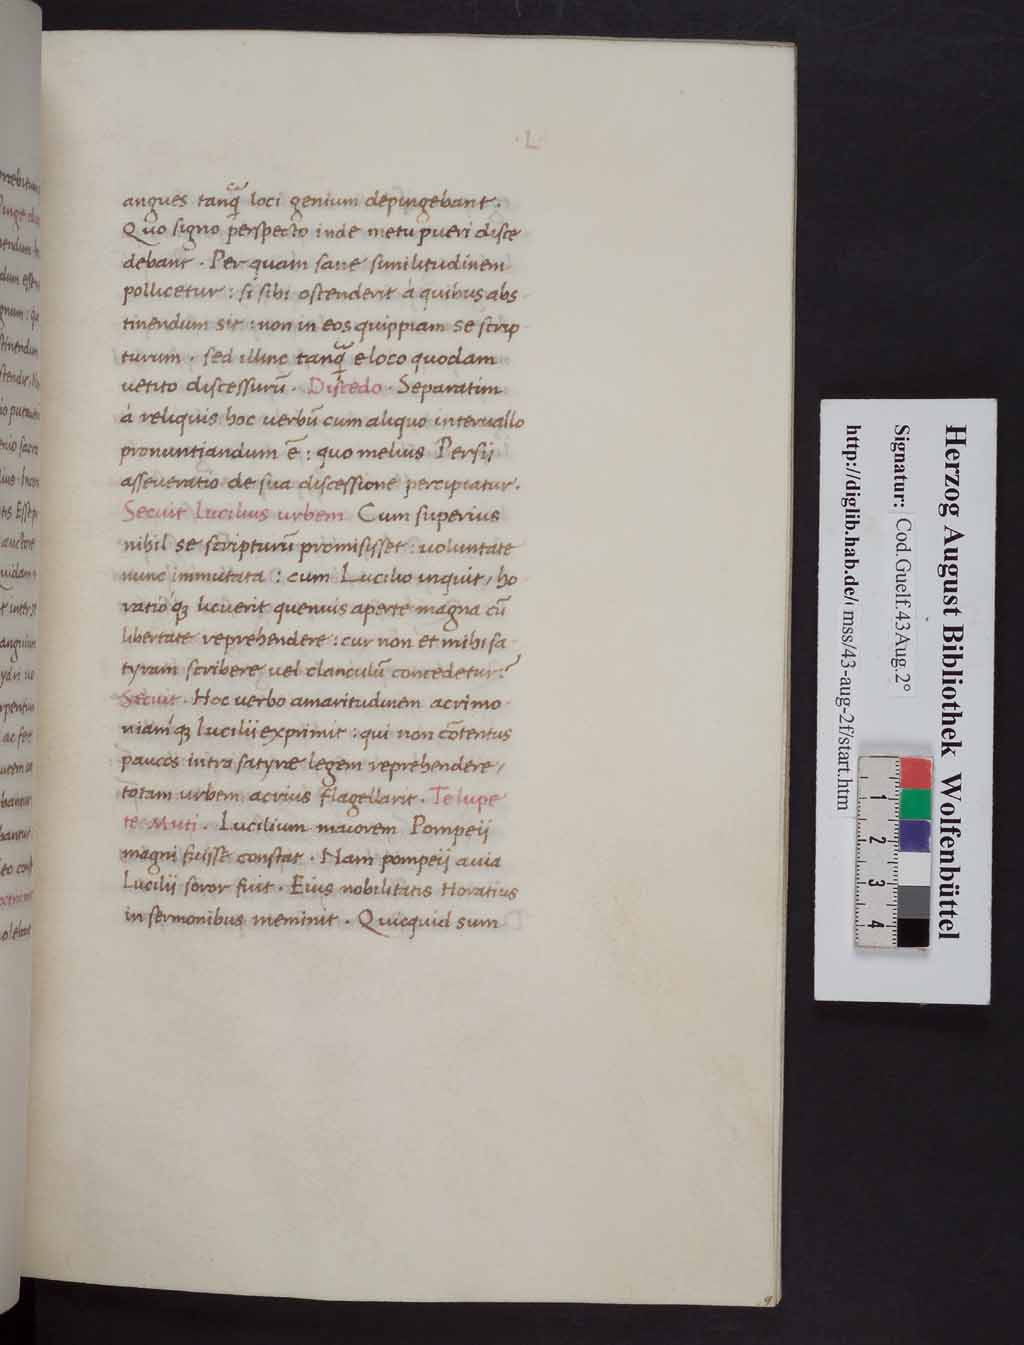 ·L·
angues tanq̃ loci genium depingebant.
Quo signo perspecto inde metu pueri disce
debant. Per quam sane similitudinem
pollicetur: si sibi ostenderit á quibus abs
tinendum sit: non in eos quippiam se scrip
turum. sed illinc tanq̃ e loco quodam
uetito discessurū. Discedo. Separatim
á reliquis hoc uerbū cum aliquo interuallo
pronuntiandum ē: quo melius Persij
asseueratio de sua discessione percipiatur.
Secuit Lucilius urbem Cum superius
nihil se scripturū promisisset: uoluntate
nunc immutata: cum Lucilio inquit, ho
ratioq3 licuerit quemuis aperte magna cū
libertate reprehendere: cur non et mihi sa
tyram scribere uel clanculū concedetur?
Secuit. Hoc uerbo amaritudinem acrimo
niamq3 Lucilii exprimit: qui non cōtentus
paucos intra satyræ legem reprehendere,
totam urbem acrius flagellarit. Te lupe
te Muti. Lucilium maiorem Pompeij
magni fuisse constat. Nam pompeij auia
Lucilij soror fuit. Eius nobilitatis Horatius
in sermonibus meminit. Quicquid sum
9
Herzog August Bibliothek Wolfenbüttel
Signatur: Cod.Guelf.43 Aug.2°
http://diglib.hab.de/ mss/43-aug-2f/start.htm
1 2 3 4